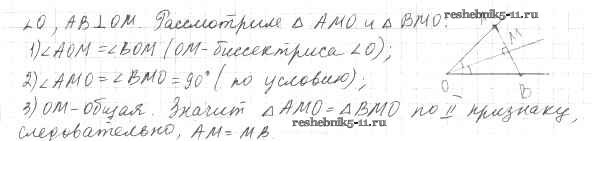 ∠O, AB⊥OM. Рассмотрим △ AMO и △ BMO:
1) ∠AOM = ∠BOM (OM - биссектриса ∠O);
2) ∠AMO = ∠BMO = 90° (по условию);
3) OM - общая. Значит △ AMO = △ BMO по II признаку,
следовательно, AM = MB.
reshebnik5-11.ru
M
O
B
reshebnik5-11.ru